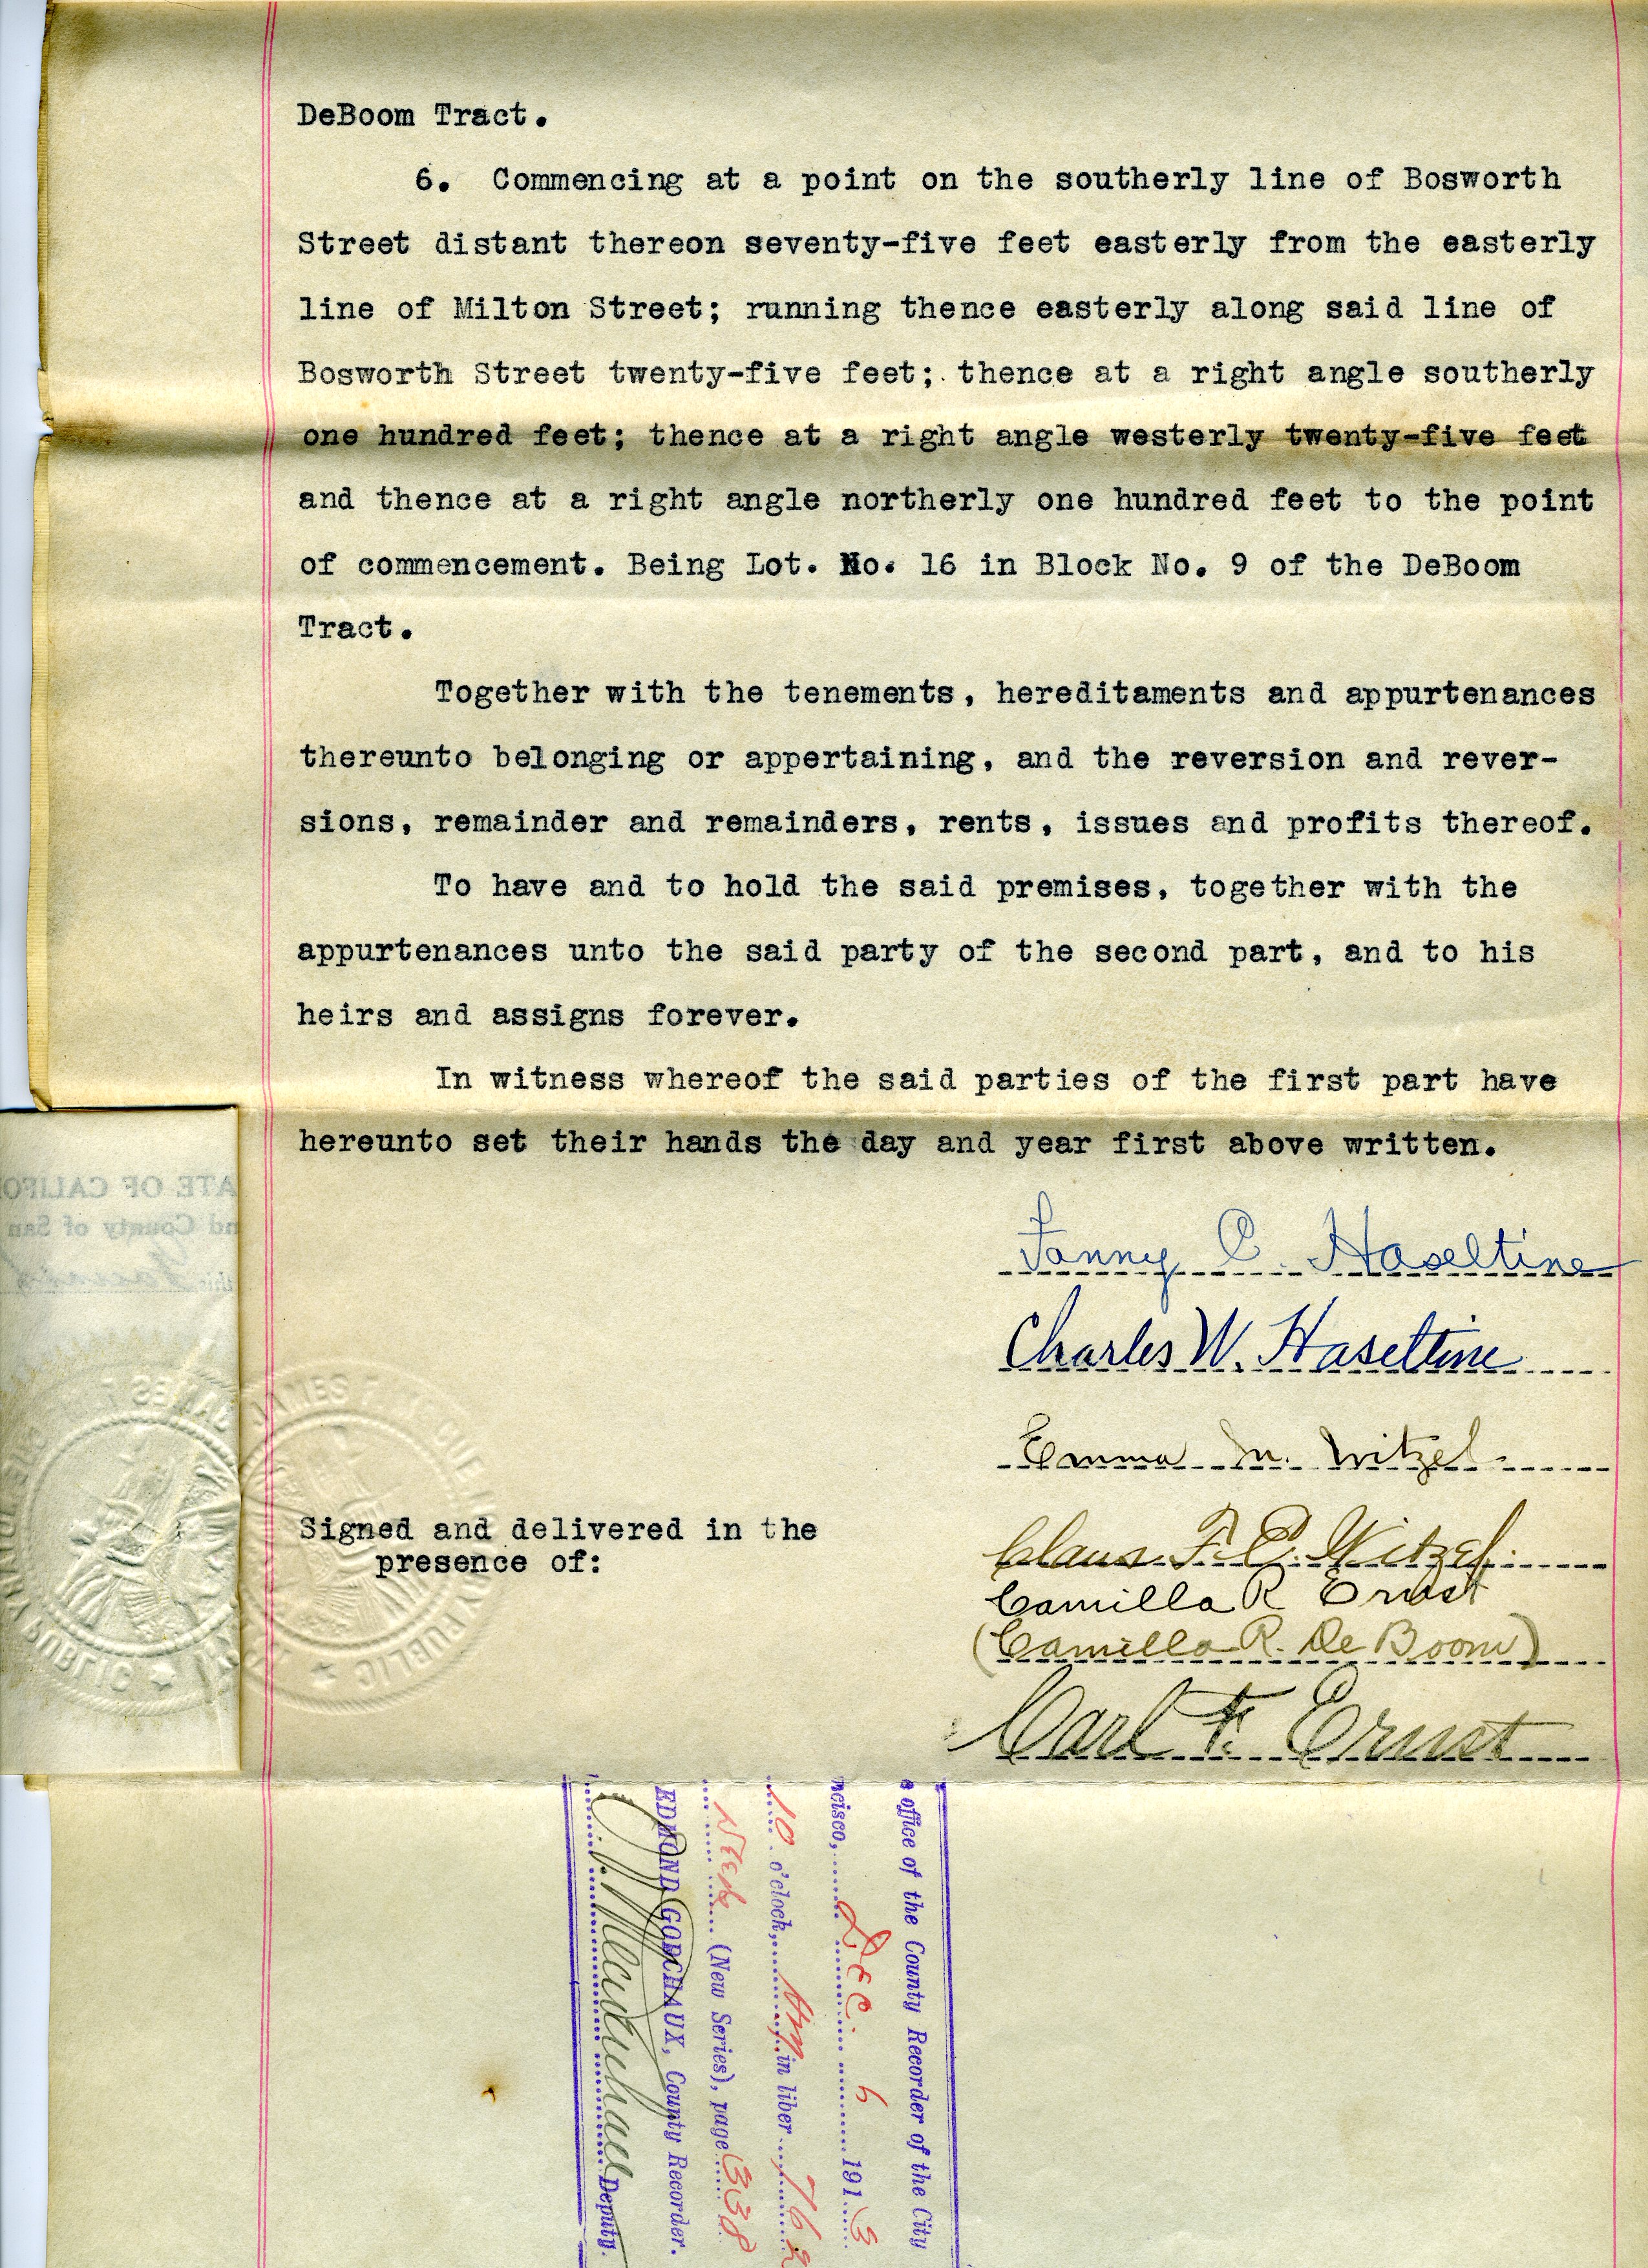 DeBoom Tract.
6. Commencing at a point on the southerly line of Bosworth
Street distant thereon seventy-five feet easterly from the easterly
line of Milton Street; running thence easterly along said line of
Bosworth Street twenty-five feet; thence at a right angle southerly
one hundred feet; thence at a right angle westerly twenty-five feet
and thence at a right angle northerly one hundred feet to the point
of commencement. Being Lot. No. 16 in Block No. 9 of the DeBoom
Tract.
Together with the tenements, hereditaments and appurtenances
thereunto belonging or appertaining, and the reversion and rever-
sions, remainder and remainders, rents, issues and profits thereof.
To have and to hold the said premises, together with the
appurtenances unto the said party of the second part, and to his
heirs and assigns forever.
In witness whereof the said parties of the first part have
hereunto set their hands the day and year first above written.
ATE OF CALIFO
nd County of San
Fanny C. Haseltine
Charles W. Haseltine
Emma M. Witzel
JAMES
PUBLIC
Signed and delivered in the
presence of:
Claus F. C. Witzel
Camilla R Ernst
(Camilla R. De Boom)
Carl F. Ernst
e office of the County Recorder of the City
ncisco, Dec. 6 1913
10 o'clock, in liber 762
(New Series), page 338
EDMOND GODCHAUX, County Recorder.
Deputy.